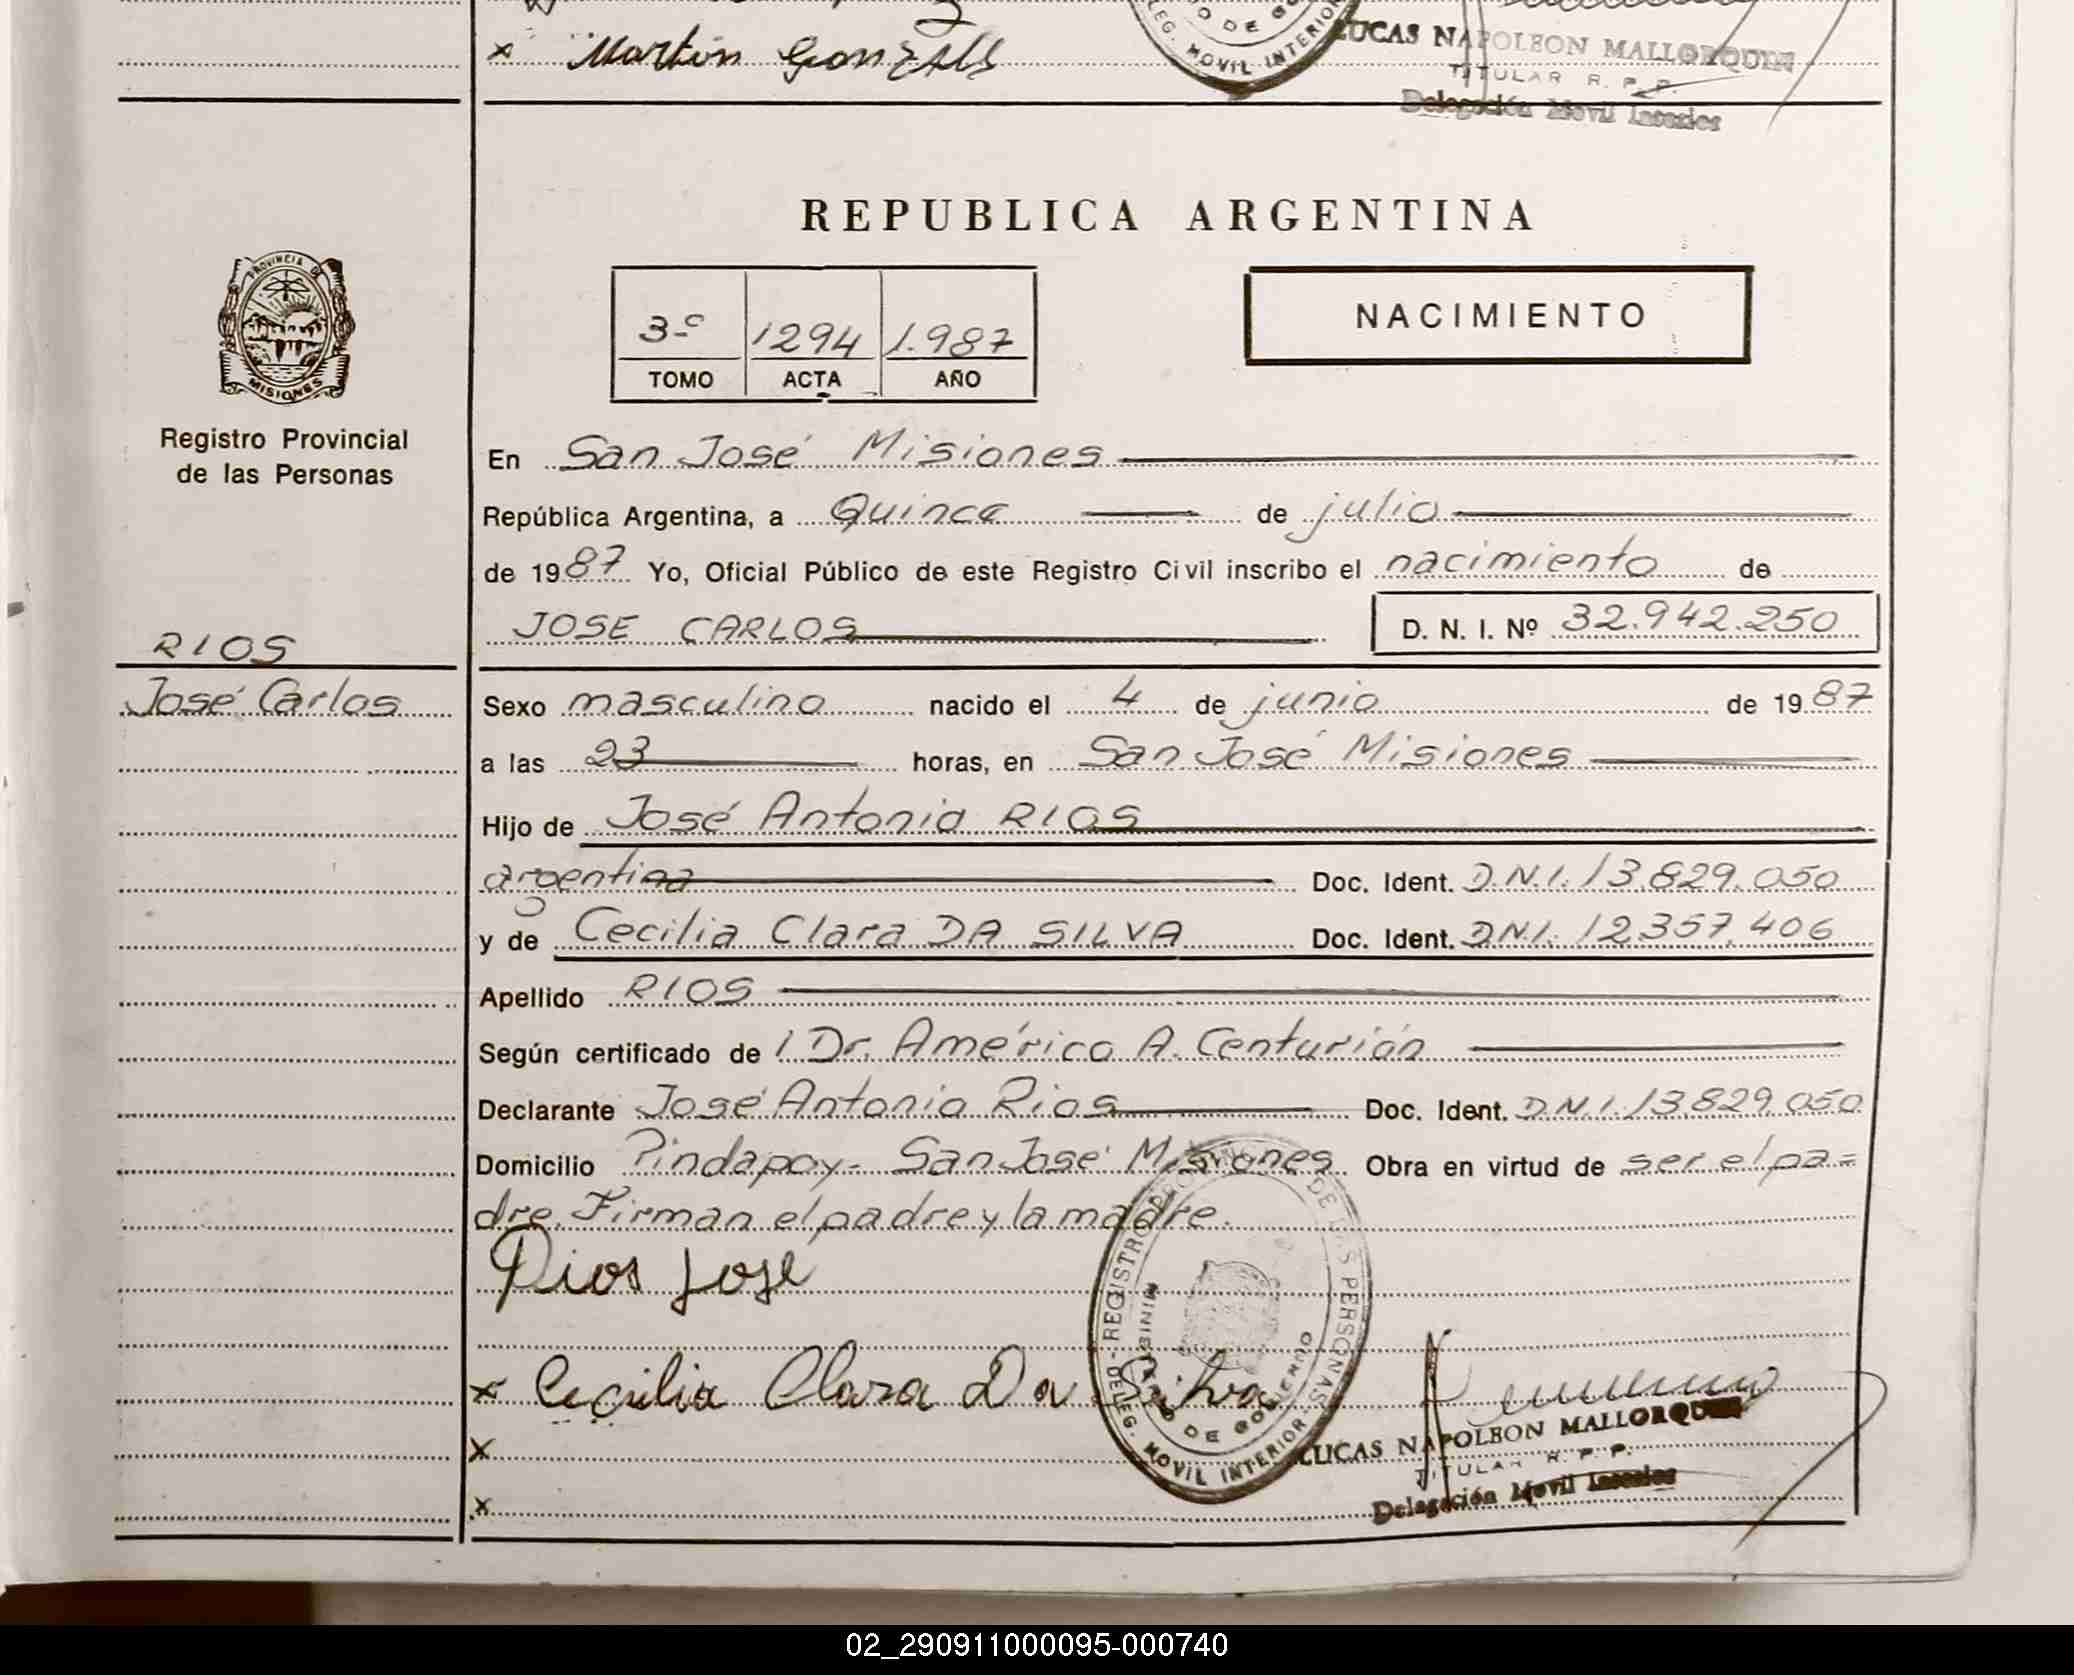 x Martin Gonzales
DELEG. MOVIL INTERIOR
LUCAS NAPOLEON MALLORQUIN
TITULAR R. P. P.
Delegación Movil
REPUBLICA ARGENTINA
PROVINCIA DE MISIONES
3º 1294 1.987
TOMO ACTA AÑO
NACIMIENTO
Registro Provincial
de las Personas
En San José Misiones
República Argentina, a Quince de julio
de 1987 Yo, Oficial Público de este Registro Civil inscribo el nacimiento de
JOSE CARLOS D. N. I. Nº 32.942.250
RIOS
José Carlos
Sexo masculino nacido el 4 de junio de 1987
a las 23 horas, en San José Misiones
Hijo de José Antonio RIOS
argentina Doc. Ident. D.N.I. 13.829.050
y de Cecilia Clara DA SILVA Doc. Ident. D.N.I. 12.357.406
Apellido RIOS
Según certificado de 1 Dr. Américo A. Centurión
Declarante José Antonio Rios Doc. Ident. D.N.I. 13.829.050
Domicilio Pindapoy - San José Misiones Obra en virtud de ser el pa=
dre. Firman el padre y la madre.
Rios Jose
x Cecilia Clara Da Silva
REGISTRO PROVINCIAL DE LAS PERSONAS
MINISTERIO DE GOBIERNO
DELEG. MOVIL INTERIOR
LUCAS NAPOLEON MALLORQUIN
TITULAR R. P. P.
Delegación Movil
x
x
02_290911000095-000740